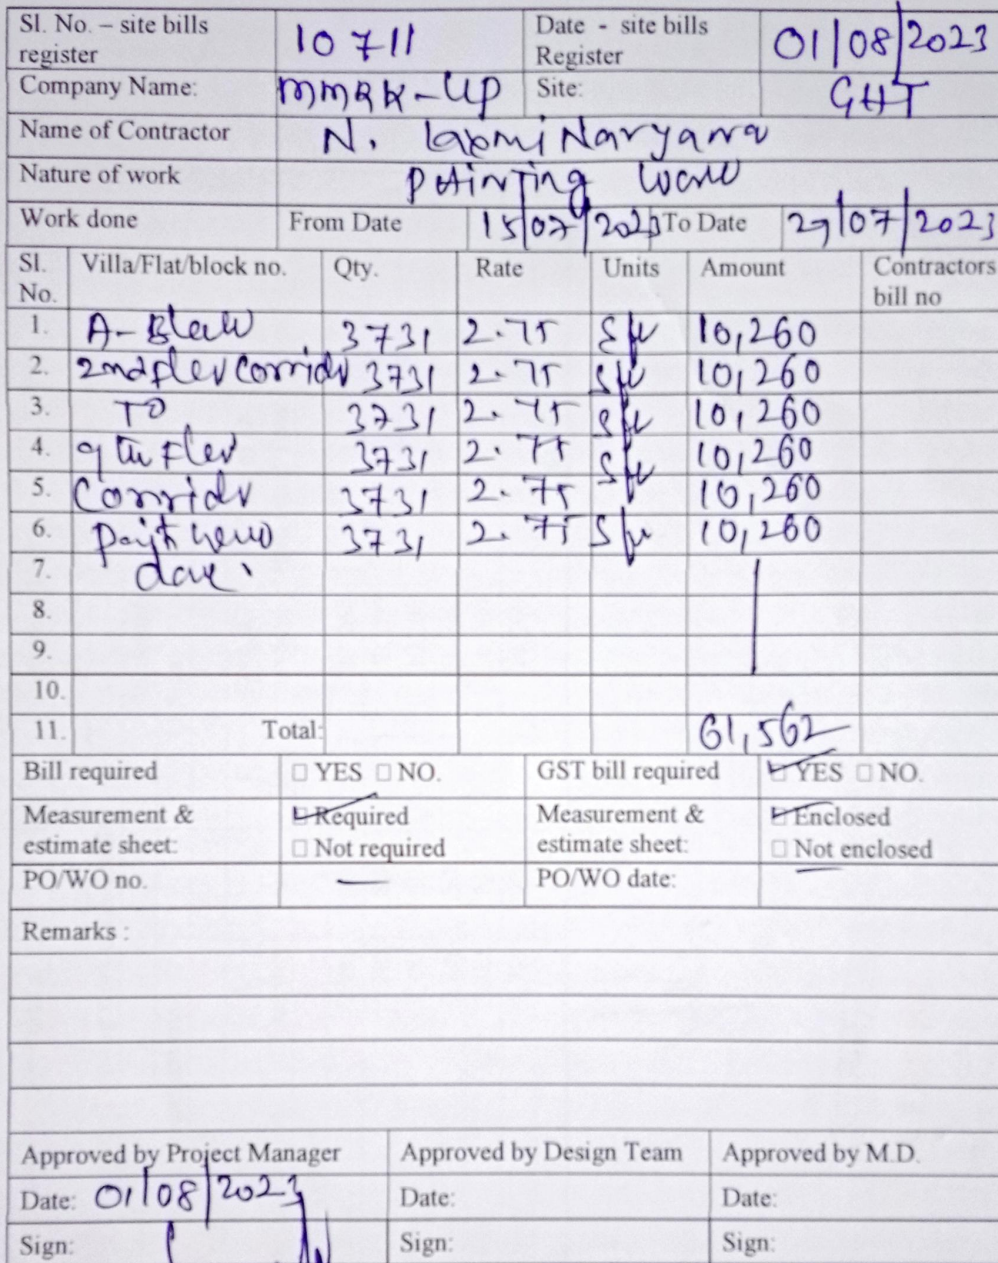 Sl. No. – site bills register 10711 Date - site bills Register 01/08/2023
Company Name: Site: GHT
Name of Contractor N. Laxmi Naryana
Nature of work Painting work
Work done From Date 15/07/2023 To Date 29/07/2023
Sl. No. Villa/Flat/block no. Qty. Rate Units Amount Contractors bill no
1. A-Block 3731 2.75 Sft 10,260
2. 2nd flor Corridor 3731 2.75 Sft 10,260
3. To 3731 2.75 Sft 10,260
4. 9th flor 3731 2.75 Sft 10,260
5. Corridor 3731 2.75 Sft 10,260
6. 3731 2.75 Sft 10,260
7.
8.
9.
10.
11. Total: 61,562
Bill required □ YES □ NO. GST bill required ☑ YES □ NO.
Measurement & estimate sheet: ☑ Required □ Not required Measurement & estimate sheet: ☑ Enclosed □ Not enclosed
PO/WO no. — PO/WO date:
Remarks :
Approved by Project Manager Approved by Design Team Approved by M.D.
Date: 01/08/2023 Date: Date:
Sign: Sign: Sign: